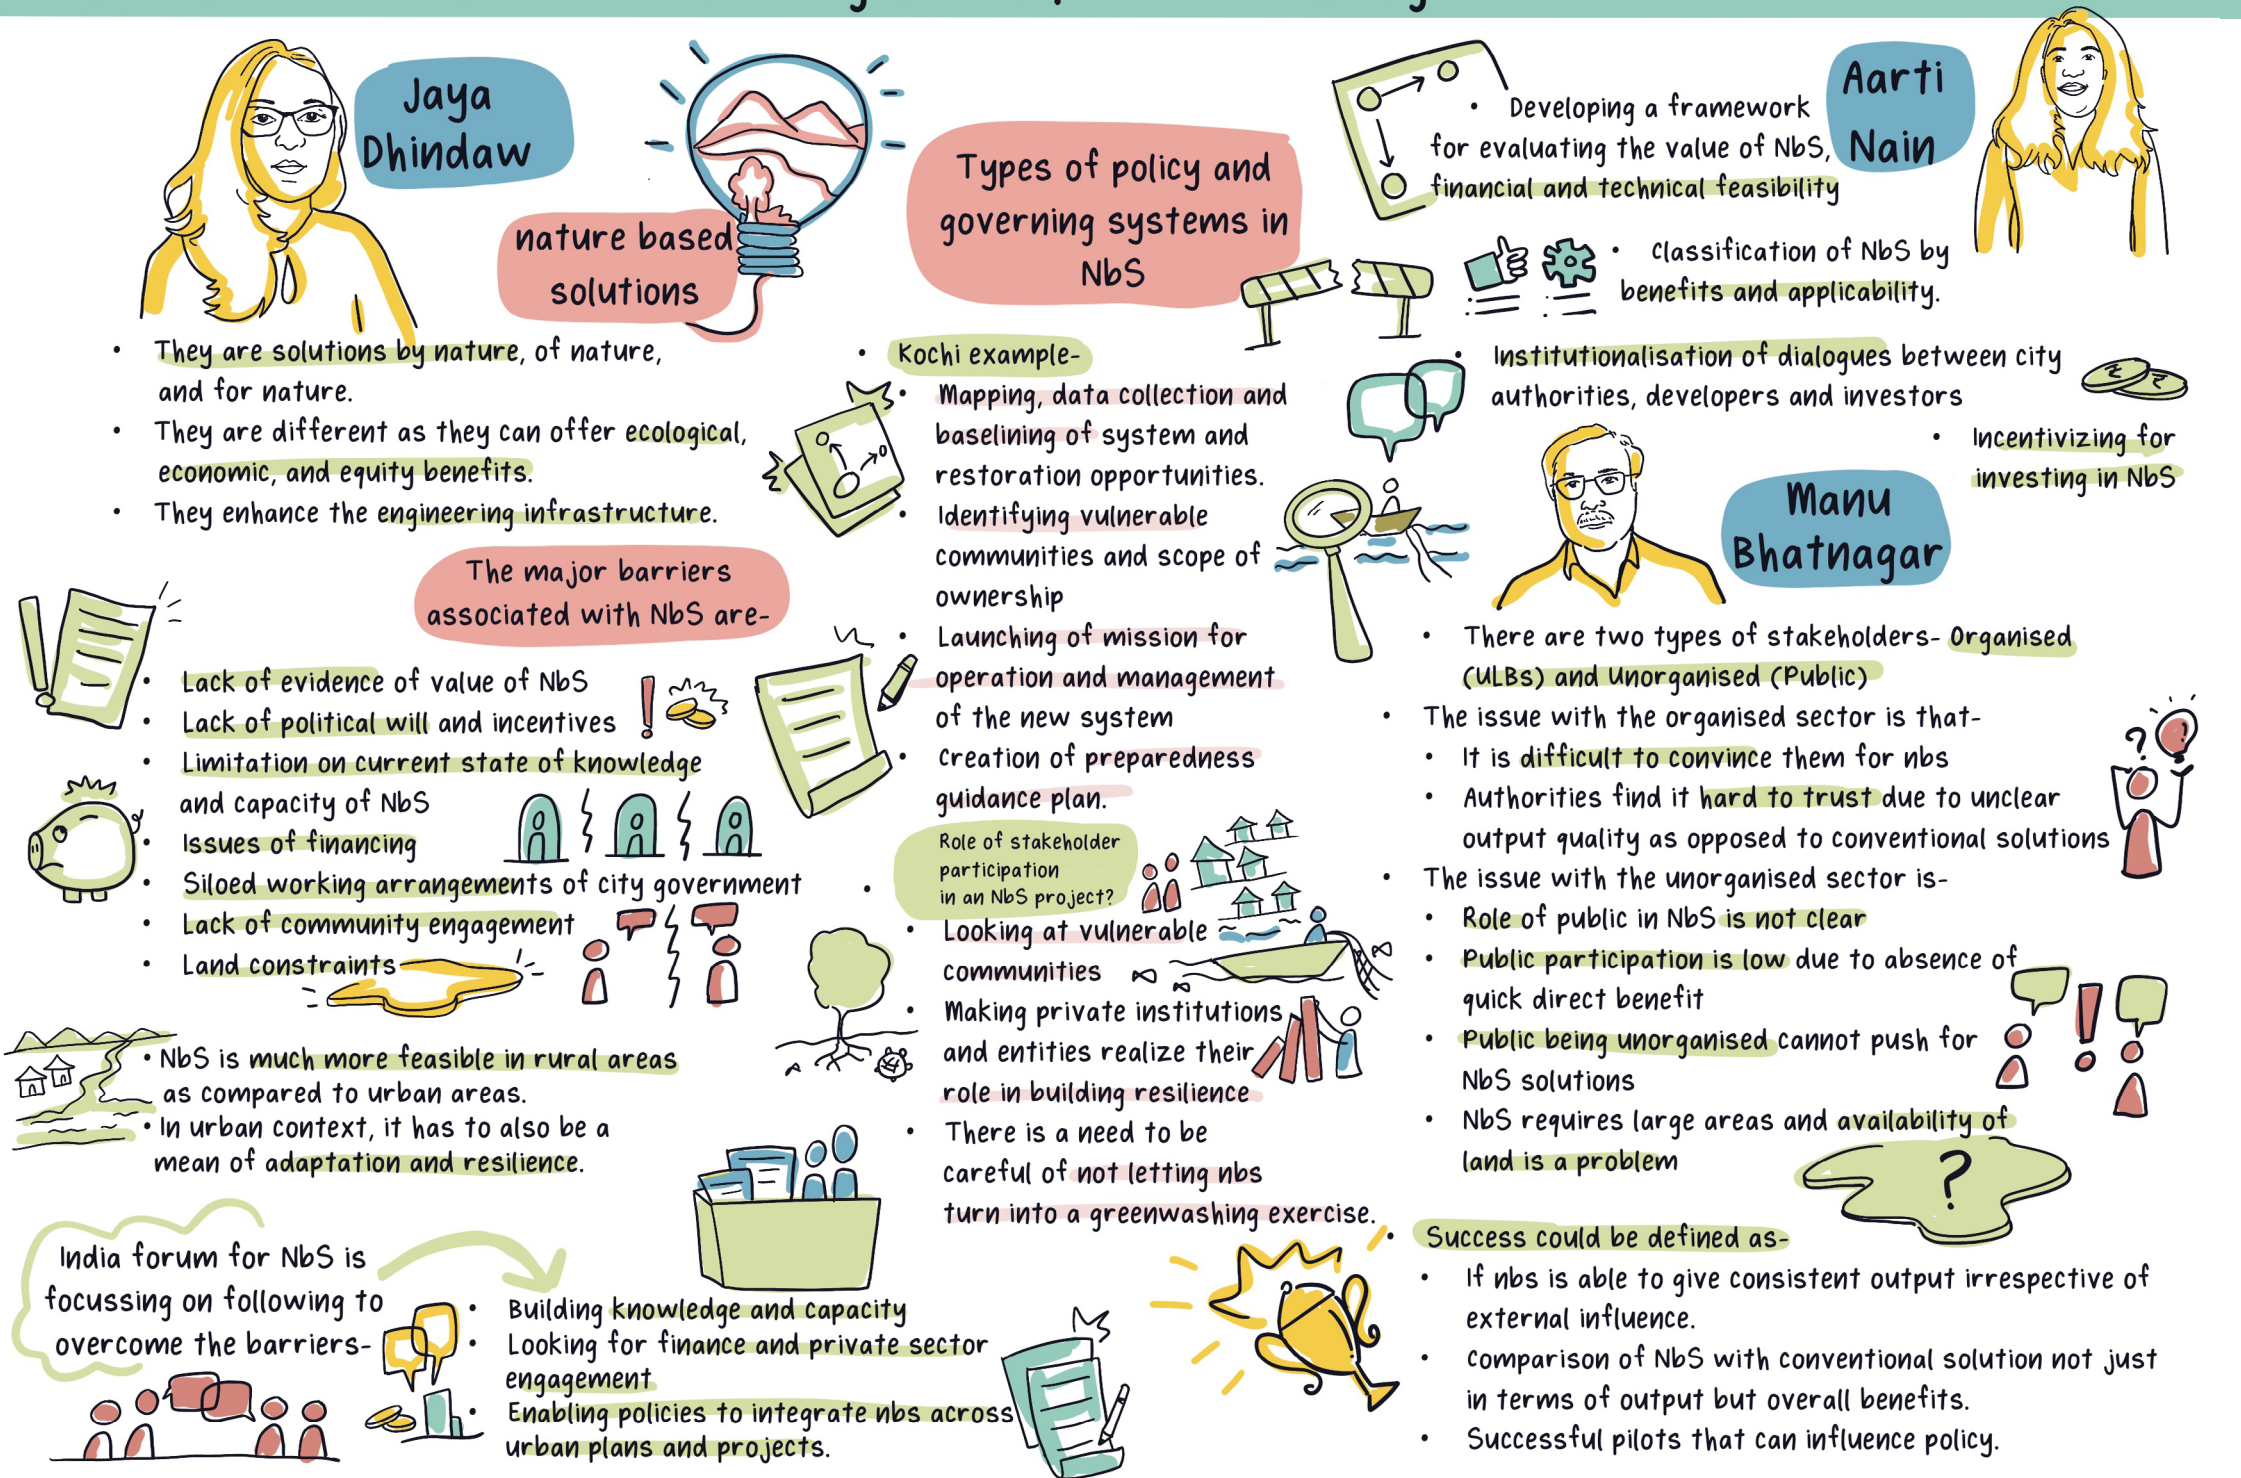 Jaya
Dhindaw
nature based
solutions
• They are solutions by nature, of nature,
and for nature.
• They are different as they can offer ecological,
economic, and equity benefits.
• They enhance the engineering infrastructure.
The major barriers
associated with NbS are-
• Lack of evidence of value of NbS
• Lack of political will and incentives
• Limitation on current state of knowledge
and capacity of NbS
• Issues of financing
• Siloed working arrangements of city government
• Lack of community engagement
• Land constraints
• NbS is much more feasible in rural areas
as compared to urban areas.
• In urban context, it has to also be a
mean of adaptation and resilience.
India forum for NbS is
focussing on following to
overcome the barriers-
• Building knowledge and capacity
• Looking for finance and private sector
engagement
• Enabling policies to integrate nbs across
urban plans and projects.
Types of policy and
governing systems in
NbS
• Kochi example-
• Mapping, data collection and
baselining of system and
restoration opportunities.
• Identifying vulnerable
communities and scope of
ownership
• Launching of mission for
operation and management
of the new system
• Creation of preparedness
guidance plan.
• Role of stakeholder
participation
in an NbS project?
• Looking at vulnerable
communities
• Making private institutions
and entities realize their
role in building resilience
• There is a need to be
careful of not letting nbs
turn into a greenwashing exercise.
Aarti
Nain
• Developing a framework
for evaluating the value of NbS,
financial and technical feasibility
• Classification of NbS by
benefits and applicability.
• Institutionalisation of dialogues between city
authorities, developers and investors
₹ ₹
• Incentivizing for
investing in NbS
Manu
Bhatnagar
• There are two types of stakeholders- Organised
(ULBs) and Unorganised (Public)
• The issue with the organised sector is that-
• It is difficult to convince them for nbs
• Authorities find it hard to trust due to unclear
output quality as opposed to conventional solutions
?
• The issue with the unorganised sector is-
• Role of public in NbS is not clear
• Public participation is low due to absence of
quick direct benefit
• Public being unorganised cannot push for
NbS solutions
• NbS requires large areas and availability of
land is a problem
?
• Success could be defined as-
• If nbs is able to give consistent output irrespective of
external influence.
• Comparison of NbS with conventional solution not just
in terms of output but overall benefits.
• Successful pilots that can influence policy.